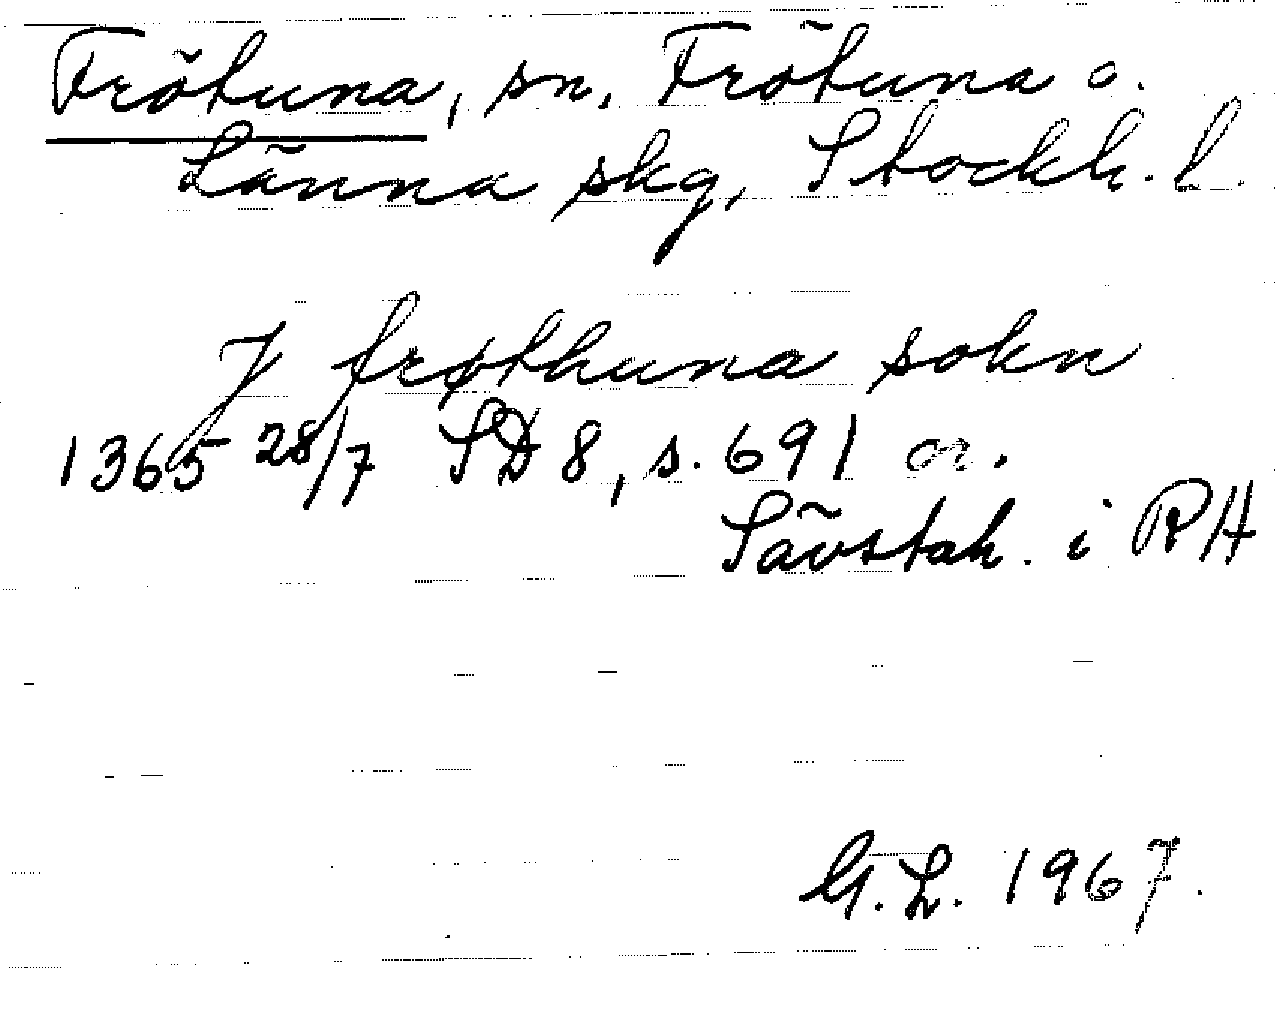 Frötuna, sn, Frötuna o.
Länna skg, Stockh. l.
J frøthuna sokn
1365 28/7 SD 8, s. 691 or.
Sävstah. i RA
G.L. 1967.